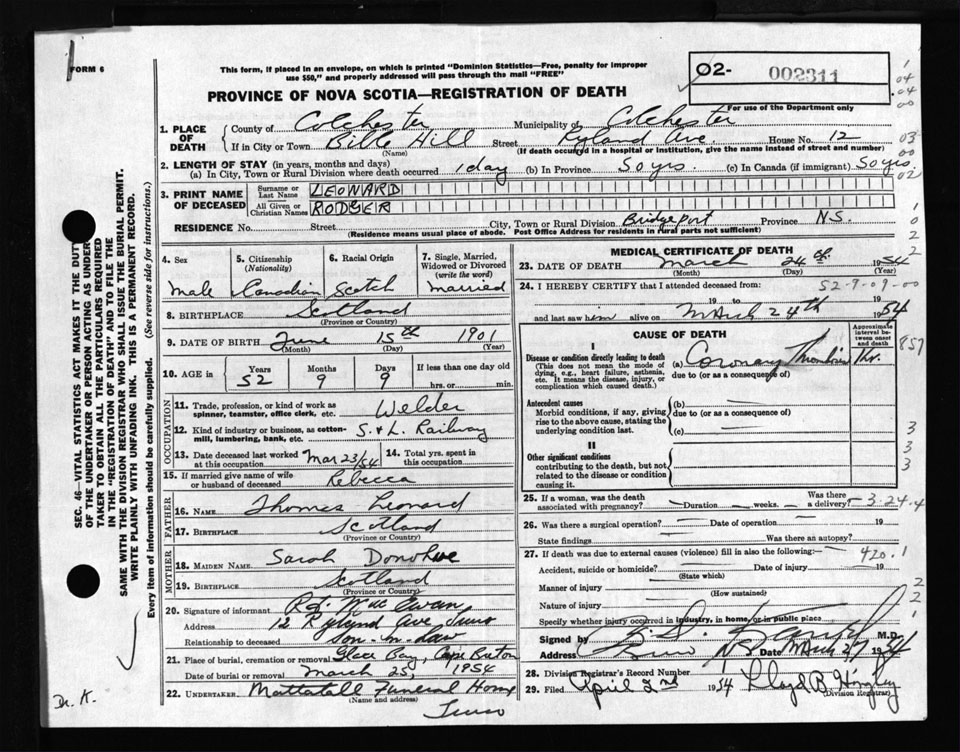 FORM 6
This form, if placed in an envelope, on which is printed "Dominion Statistics—Free, penalty for improper
use $50," and properly addressed will pass through the mail "FREE"
PROVINCE OF NOVA SCOTIA—REGISTRATION OF DEATH
02- 002311
For use of the Department only
1. PLACE OF DEATH
County of Colchester Municipality of Colchester
If in City or Town Bible Hill Street Ryland Ave House No. 12
(Name) (If death occurred in a hospital or institution, give the name instead of street and number)
2. LENGTH OF STAY (in years, months and days)
(a) In City, Town or Rural Division where death occurred 1 day (b) In Province 50 yrs (c) In Canada (if immigrant) 50 yrs.
3. PRINT NAME OF DECEASED
Surname or Last Name LEONARD
All Given or Christian Names RODGER
RESIDENCE No. Street City, Town or Rural Division Bridgeport Province N.S.
(Residence means usual place of abode. Post Office Address for residents in rural parts not sufficient)
4. Sex Male
5. Citizenship (Nationality) Canadian
6. Racial Origin Scotch
7. Single, Married, Widowed or Divorced (write the word) Married
8. BIRTHPLACE Scotland
(Province or Country)
9. DATE OF BIRTH June 15th 1901
(Month) (Day) (Year)
10. AGE in Years 52 Months 9 Days 9 If less than one day old hrs. or min.
OCCUPATION
11. Trade, profession, or kind of work as spinner, teamster, office clerk, etc. Welder
12. Kind of industry or business, as cotton-mill, lumbering, bank, etc. S. & L. Railway
13. Date deceased last worked at this occupation Mar 23/54
14. Total yrs. spent in this occupation
15. If married give name of wife or husband of deceased Rebecca
FATHER
16. NAME Thomas Leonard
17. BIRTHPLACE Scotland
(Province or Country)
MOTHER
18. MAIDEN NAME Sarah Donohue
19. BIRTHPLACE Scotland
(Province or Country)
20. Signature of informant R.J. MacEwan
Address 12 Ryland Ave Truro
Relationship to deceased Son-in-law
21. Place of burial, cremation or removal Glace Bay, Cape Breton
Date of burial or removal March 25, 1954
22. UNDERTAKER Mattatall Funeral Home
(Name and address)
Truro
MEDICAL CERTIFICATE OF DEATH
23. DATE OF DEATH March 24th 1954
(Month) (Day) (Year)
24. I HEREBY CERTIFY that I attended deceased from:
52-9-09-00
19 to 19
and last saw him alive on March 24th 1954
CAUSE OF DEATH
Approximate interval between onset and death
I
Disease or condition directly leading to death
(This does not mean the mode of dying, e.g., heart failure, asthenia, etc. It means the disease, injury, or complication which caused death.)
(a) Coronary Thrombosis
due to (or as a consequence of)
857
Antecedent causes
Morbid conditions, if any, giving rise to the above cause, stating the underlying condition last.
(b)
due to (or as a consequence of)
(c)
II
Other significant conditions
contributing to the death, but not related to the disease or condition causing it.
3
3
3
25. If a woman, was the death associated with pregnancy? Duration weeks. Was there a delivery? 3.24.4
26. Was there a surgical operation? Date of operation 19
State findings Was there an autopsy?
27. If death was due to external causes (violence) fill in also the following:—
420.1
Accident, suicide or homicide? Date of injury 19
(State which)
Manner of injury
(How sustained)
Nature of injury
Specify whether injury occurred in industry, in home, or in public place
Signed by M.D.
Address Truro NS Date March 27 1954
28. Division Registrar's Record Number
29. Filed April 2nd 1954 Lloyd B. Hingley
(Division Registrar)
SEC. 46—VITAL STATISTICS ACT MAKES IT THE DUTY
OF THE UNDERTAKER OR PERSON ACTING AS UNDER-
TAKER TO OBTAIN ALL THE PARTICULARS REQUIRED
IN THE "REGISTRATION OF DEATH" AND TO FILE THE
SAME WITH THE DIVISION REGISTRAR WHO SHALL ISSUE THE BURIAL PERMIT.
WRITE PLAINLY WITH UNFADING INK. THIS IS A PERMANENT RECORD.
Every item of information should be carefully supplied. (See reverse side for instructions.)
Dr. K.
1
04
04
00
03
00
02
1
0
2
2
2
2
1